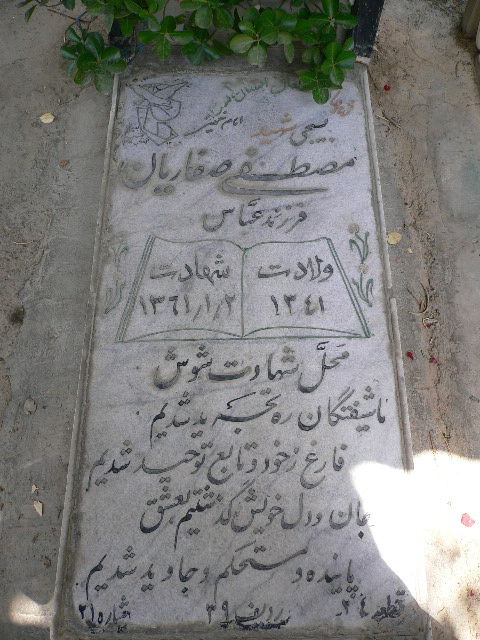 امام خمینی
بسیجی شهید
مصطفی صفاریان
فرزند عباس
ولادت
۱۳۴۱
شهادت
۱۳۶۱/۱/۲
محل شهادت شوش
ما شیفتگان ره تجرید شدیم
فارغ ز خود و تابع توحید شدیم
جان و دل خویش گذشتیم بعشق
پاینده و مستحکم و جاوید شدیم
قطعه ۲۴ ردیف ۳۹ شماره ۲۱